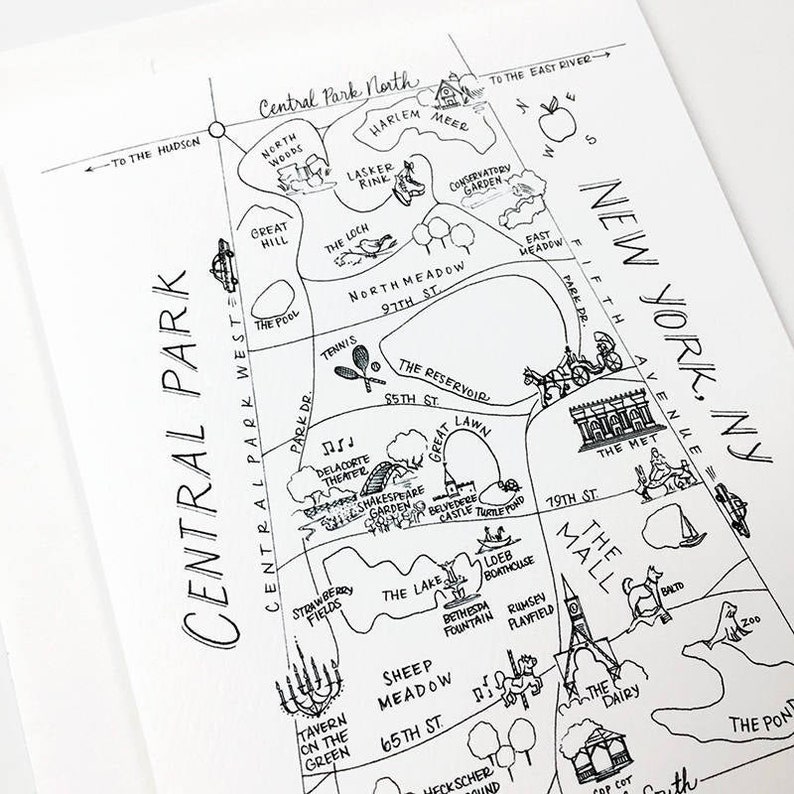 Central Park North
TO THE EAST RIVER
TO THE HUDSON
N
E
S
W
NORTH
WOODS
HARLEM MEER
LASKER
RINK
CONSERVATORY
GARDEN
GREAT
HILL
THE LOCH
EAST
MEADOW
NORTH MEADOW
97TH ST.
THE POOL
PARK DR.
FIFTH AVENUE
CENTRAL PARK
NEW YORK, NY
CENTRAL PARK WEST
TENNIS
THE RESERVOIR
PARK DR.
85TH ST.
GREAT LAWN
THE MET
DELACORTE
THEATER
SHAKESPEARE
GARDEN
BELVEDERE
CASTLE
TURTLE POND
79TH ST.
THE
MALL
LOEB
BOATHOUSE
STRAWBERRY
FIELDS
THE LAKE
BETHESDA
FOUNTAIN
RUMSEY
PLAYFIELD
BALTO
ZOO
SHEEP
MEADOW
THE DAIRY
THE POND
TAVERN
ON THE
GREEN
65TH ST.
HECKSCHER
COT
South